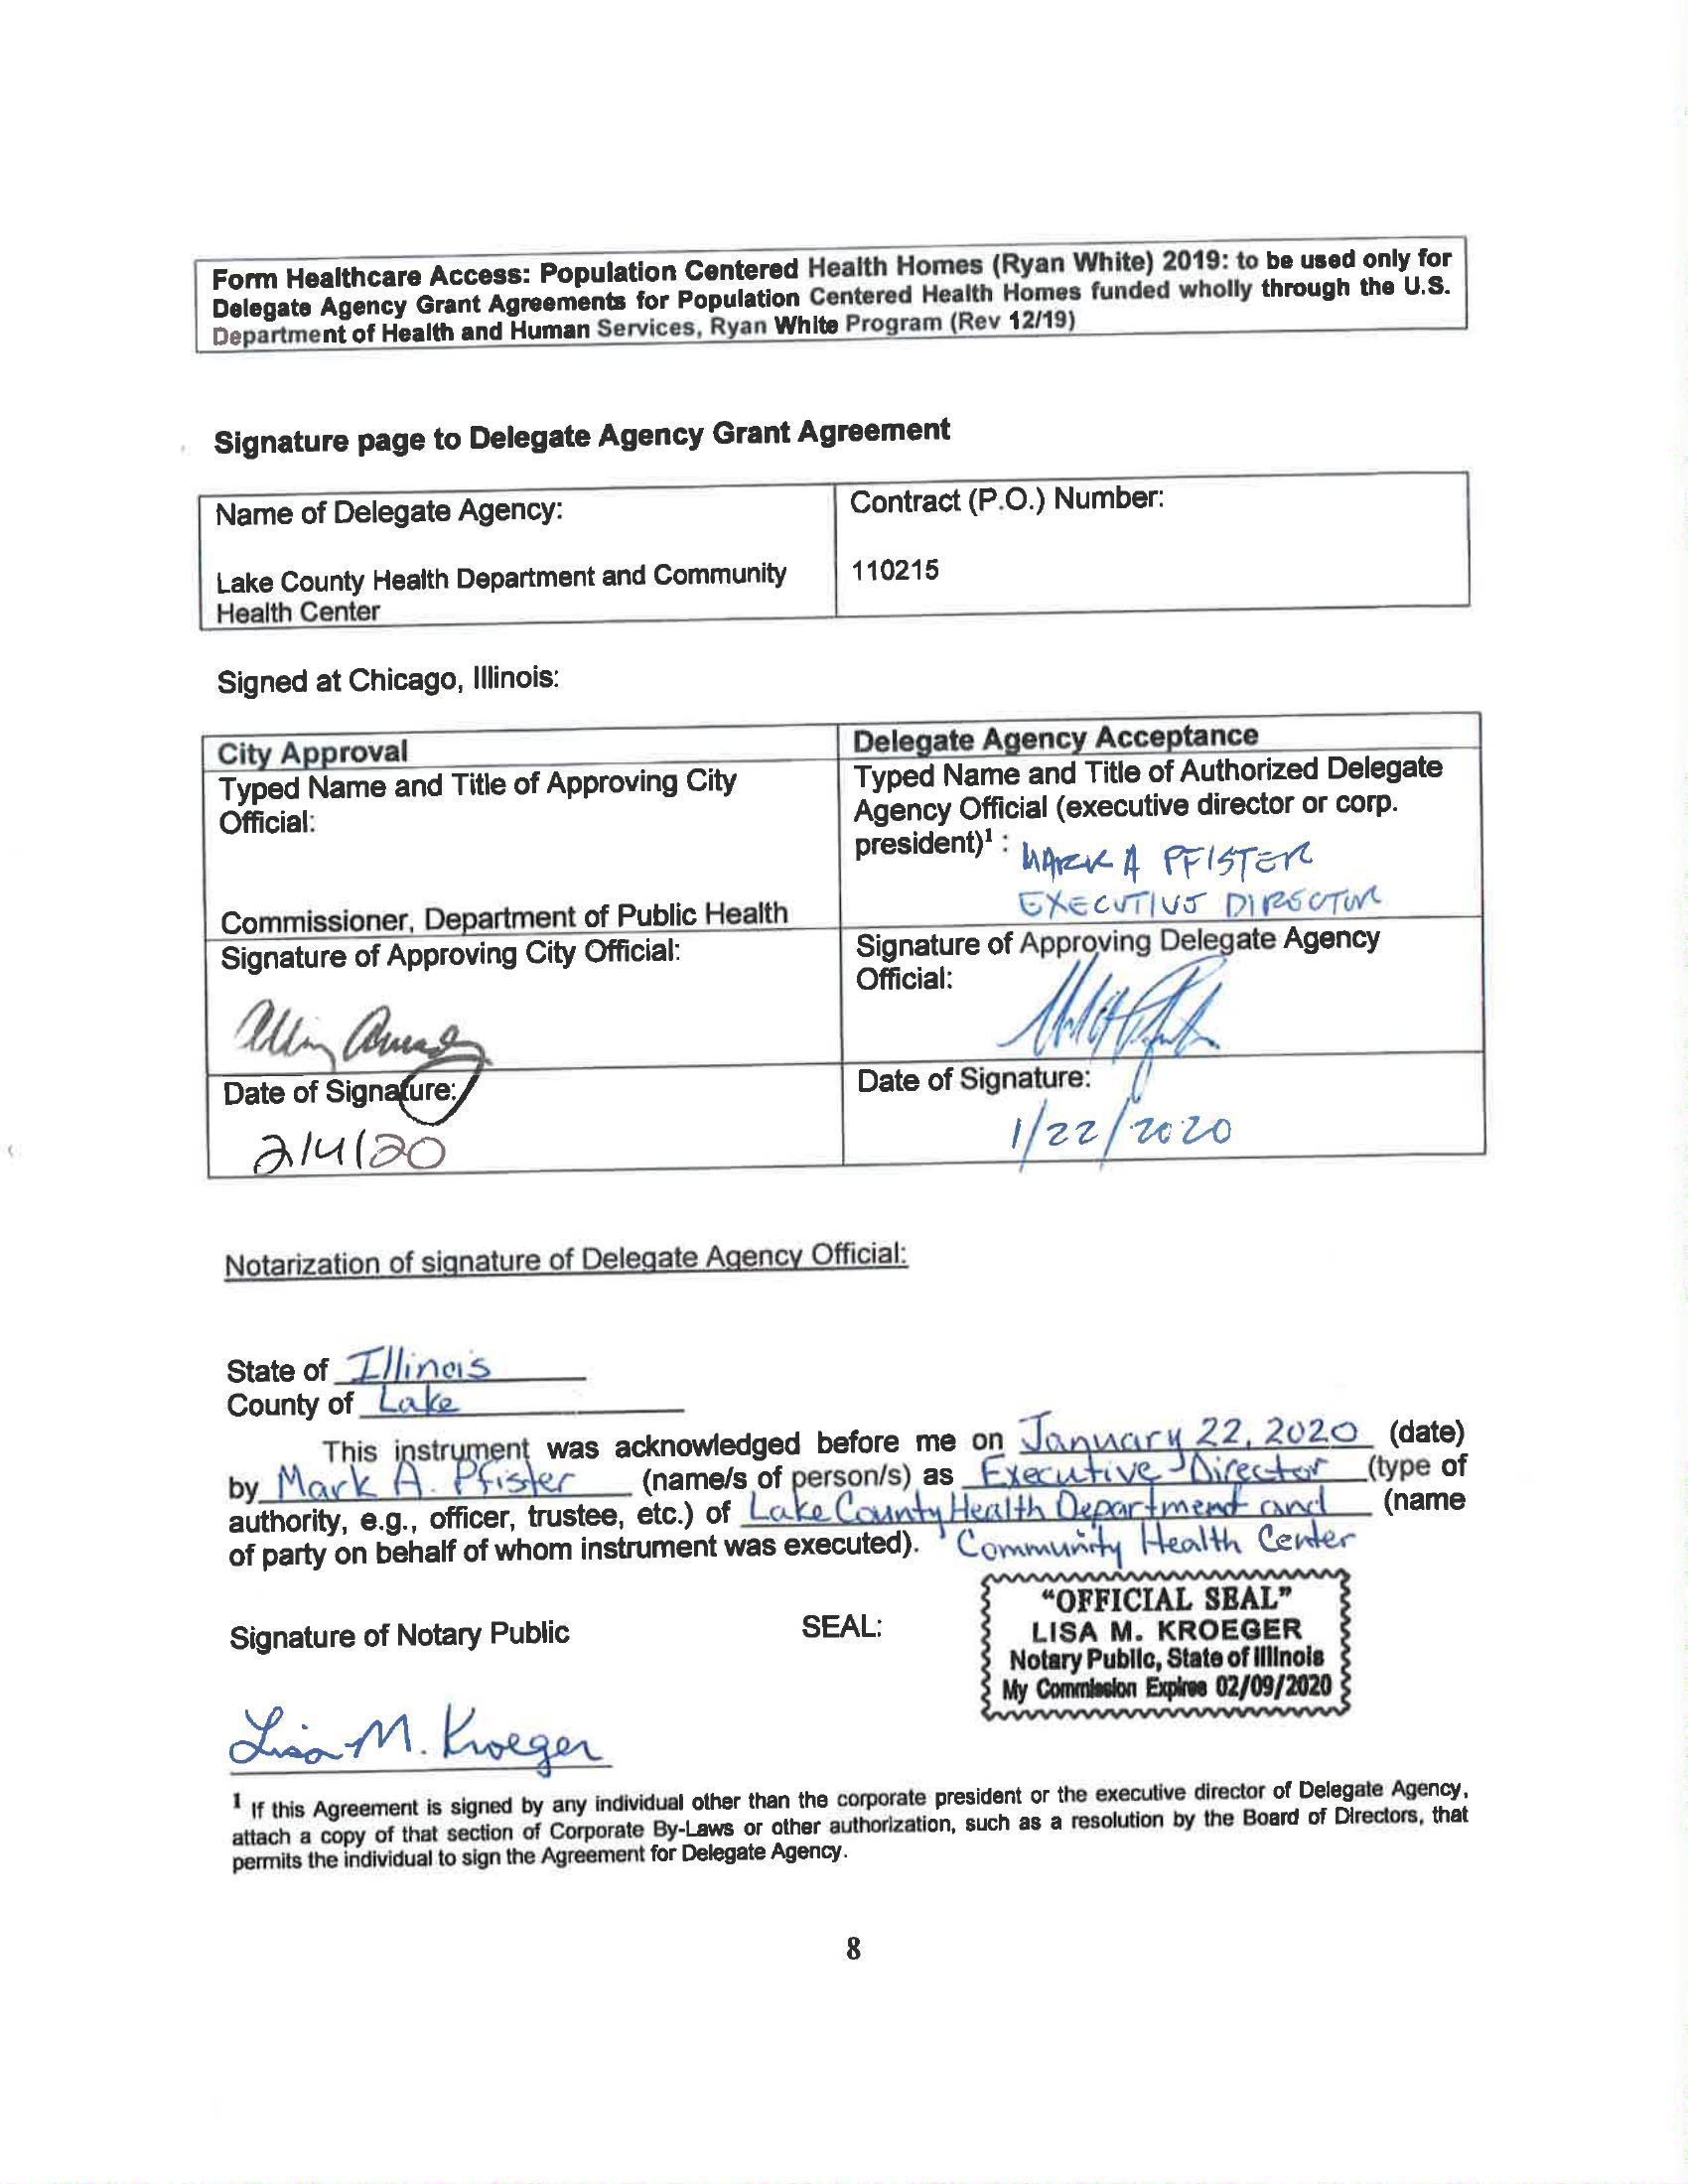 Form Healthcare Access: Population Centered Health Homes (Ryan White) 2019: to be used only for
Delegate Agency Grant Agreements for Population Centered Health Homes funded wholly through the U.S.
Department of Health and Human Services, Ryan White Program (Rev 12/19)
Signature page to Delegate Agency Grant Agreement
Name of Delegate Agency:
Lake County Health Department and Community
Health Center
Contract (P.O.) Number:
110215
Signed at Chicago, Illinois:
City Approval
Typed Name and Title of Approving City
Official:
Commissioner, Department of Public Health
Signature of Approving City Official:
Date of Signature:
2/4/20
Delegate Agency Acceptance
Typed Name and Title of Authorized Delegate
Agency Official (executive director or corp.
president)¹ : MARK A PFISTER
EXECUTIVE DIRECTOR
Signature of Approving Delegate Agency
Official:
Date of Signature:
1/22/2020
Notarization of signature of Delegate Agency Official:
State of Illinois
County of Lake
This instrument was acknowledged before me on January 22, 2020 (date)
by Mark A. Pfister (name/s of person/s) as Executive Director (type of
authority, e.g., officer, trustee, etc.) of Lake County Health Department and (name
of party on behalf of whom instrument was executed). Community Health Center
Signature of Notary Public
SEAL:
"OFFICIAL SEAL"
LISA M. KROEGER
Notary Public, State of Illinois
My Commission Expires 02/09/2020
Lisa M. Kroeger
¹ If this Agreement is signed by any individual other than the corporate president or the executive director of Delegate Agency,
attach a copy of that section of Corporate By-Laws or other authorization, such as a resolution by the Board of Directors, that
permits the individual to sign the Agreement for Delegate Agency.
8